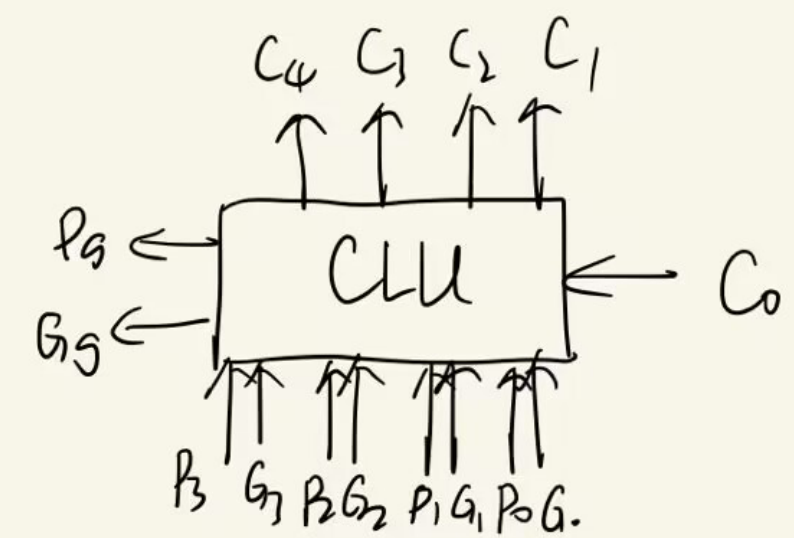 C4 C3 C2 C1
Pg
CLU
C0
Gg
P3 G3 P2 G2 P1 G1 P0 G.